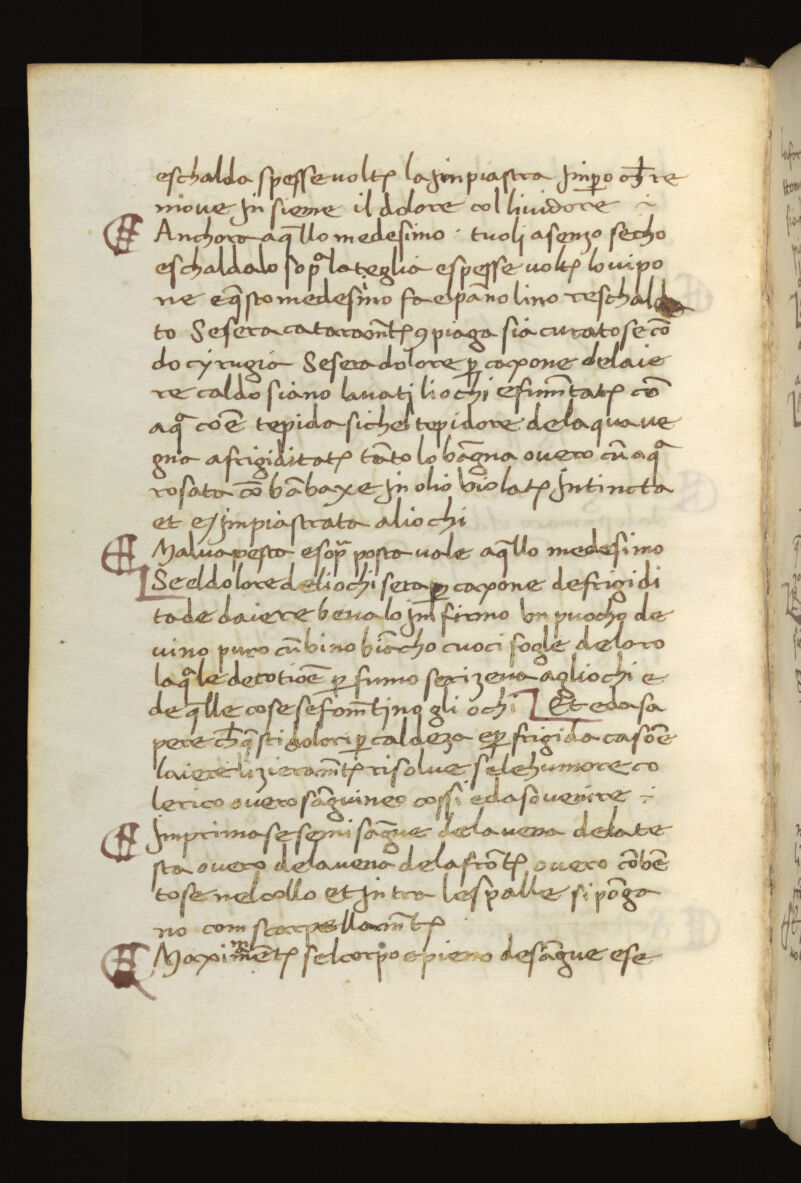 eschalda spesse uolt lainpiastra Impo ch re
moue Insieme il dolore col liuidore ÷
Anchora aqllo medesimo · tuoli asenzo secho
eschaldalo sopra la teglia espesse uolt lo uipo
ne eqsto medesimo fa elpano lino reschalda
to Se sera cataramt piaga sia curato se cō
do cyrugia Se sera dolore p caxone de laie
re caldo siano lauati li ochi e fumētat cō
aqa coē tepida siche l tepidore de laqua ue
gna a frigiditat tāto lo bāgna ouero cū aqa
rosata cō bābaxe In olio violat Intincta
et Impiastrata ali ochi
Malua pesta e sopra posta uale aqllo medesimo
Se el dolore de li ochi sera p caxone de frigidi
ta de daiere beua lo Infirmo vn puocho de
uino puro cū bino biācho cuoci fogle de loro
laqale decotioē p fumo se rizeua agliochi e
de qlle cose se fomētino gli ochi Et e da sa
pere ch qsti dolori p caldeza e p frigida casōe
laiere lizieramēt risolue se le humore co
lerico ouero sāguineo cossi e da souenire ÷
Imprima se semi sāgue de la uena de la te
sta ouero de la uena de la frōt ouero cōbē
tose nel collo et Intra le spalle si pōga
no com scarpellamēt
Maximamēt sel corpo e pieno de sāgue e se